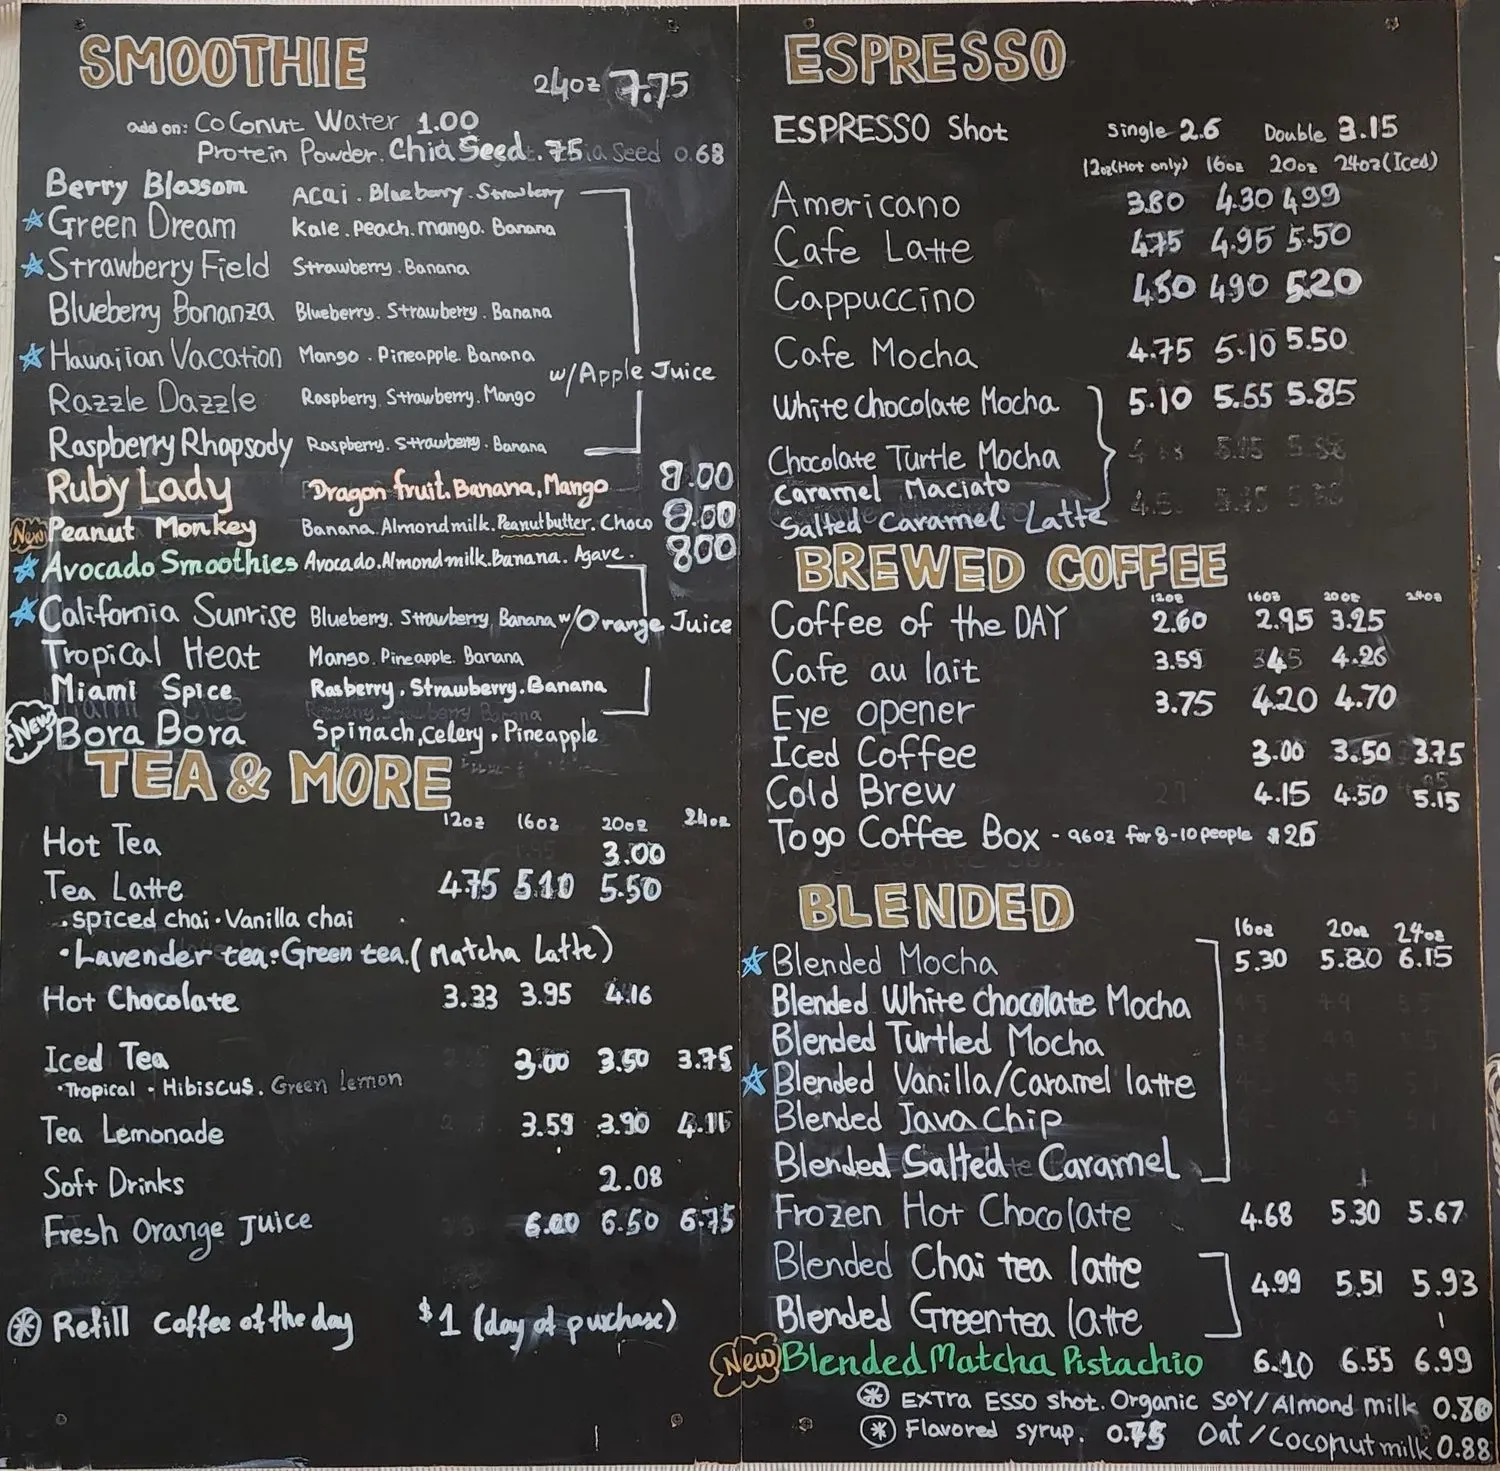 SMOOTHIE
24oz 7.75
add on: Coconut Water 1.00
Protein Powder. Chia Seed .75 Seed 0.68
Berry Blossom Acai . Blueberry . Strawberry
Green Dream Kale . Peach. mango. Banana
Strawberry Field Strawberry . Banana
Blueberry Bonanza Blueberry. Strawberry . Banana
Hawaiian Vacation Mango . Pineapple. Banana
w/Apple Juice
Razzle Dazzle Raspberry. Strawberry. Mango
Raspberry Rhapsody Raspberry. Strawberry. Banana
Ruby Lady Dragon fruit. Banana, Mango 8.00
New Peanut Monkey Banana. Almond milk. Peanut butter. Choco 8.00
Avocado Smoothies Avocado. Almond milk. Banana. Agave. 800
California Sunrise Blueberry. Strawberry. Banana w/Orange Juice
Tropical Heat Mango. Pineapple. Banana
Miami Spice Rasberry. Strawberry. Banana
New Bora Bora Spinach, celery . Pineapple
TEA & MORE
12oz 16oz 20oz 24oz
Hot Tea 3.00
Tea Latte 475 5.10 5.50
. spiced chai . Vanilla chai
. Lavender tea . Green tea (Matcha Latte)
Hot Chocolate 3.33 3.95 4.16
Iced Tea 3.00 3.50 3.75
. Tropical . Hibiscus . Green lemon
Tea Lemonade 3.59 3.90 4.16
Soft Drinks 2.08
Fresh Orange Juice 6.00 6.50 6.75
Refill Coffee of the day $1 (day of purchase)
ESPRESSO
ESPRESSO Shot single 2.6 Double 3.15
12oz(Hot only) 16oz 20oz 24oz(Iced)
Americano 3.80 4.30 499
Cafe Latte 475 4.95 5.50
Cappuccino 450 490 520
Cafe Mocha 4.75 5.10 5.50
White chocolate Mocha 5.10 5.55 5.85
Chocolate Turtle Mocha
Caramel Maciato
Salted Caramel Latte
BREWED COFFEE
12oz 16oz 20oz 24oz
Coffee of the DAY 2.60 2.95 3.25
Cafe au lait 3.59 4.26
Eye opener 3.75 4.20 4.70
Iced Coffee 3.00 3.50 3.75
Cold Brew 4.15 4.50 5.15
To go Coffee Box - 96oz for 8-10 people $25
BLENDED
16oz 20oz 24oz
Blended Mocha 5.30 5.80 6.15
Blended White chocolate Mocha
Blended Turtled Mocha
Blended Vanilla/Caramel latte
Blended Java chip
Blended Salted Caramel
Frozen Hot Chocolate 4.68 5.30 5.67
Blended Chai tea latte
4.99 5.51 5.93
Blended Green tea latte
New Blended Matcha Pistachio 6.10 6.55 6.99
Extra Esso shot. Organic Soy/Almond milk 0.80
Flavored syrup. 0.75 Oat/Coconut milk 0.88